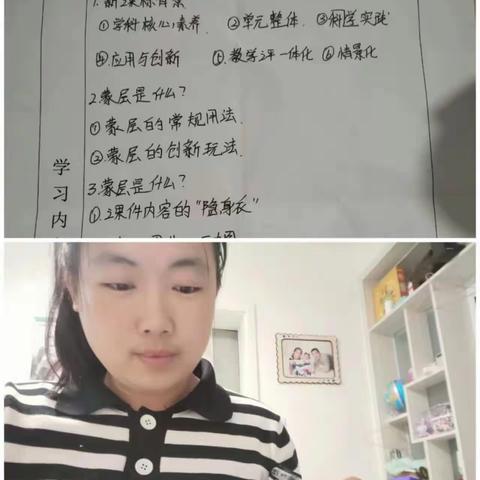 1.新课标背景
①学科核心素养. ②单元整体. ③科学实践
④.应用与创新 ⑤.教学评一体化 ⑥情景化
2.蒙层是什么?
①蒙层的常规用法.
②.蒙层的创新玩法.
3.蒙层是什么?
①.课件内容的"隐身衣"
学习内